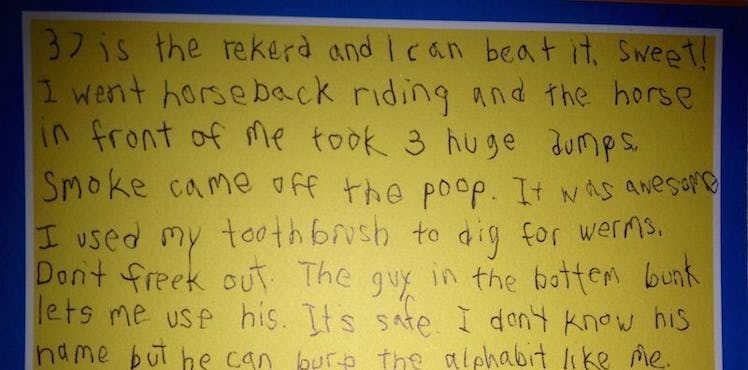 37 is the rekerd and I can beat it. Sweet!
I went horseback riding and the horse
in front of me took 3 huge dumps.
Smoke came off the poop. It was awesome
I used my toothbrush to dig for werms.
Don't freek out. The guy in the bottem bunk
lets me use his. It's safe. I don't know his
name but he can burp the alphabit like me.